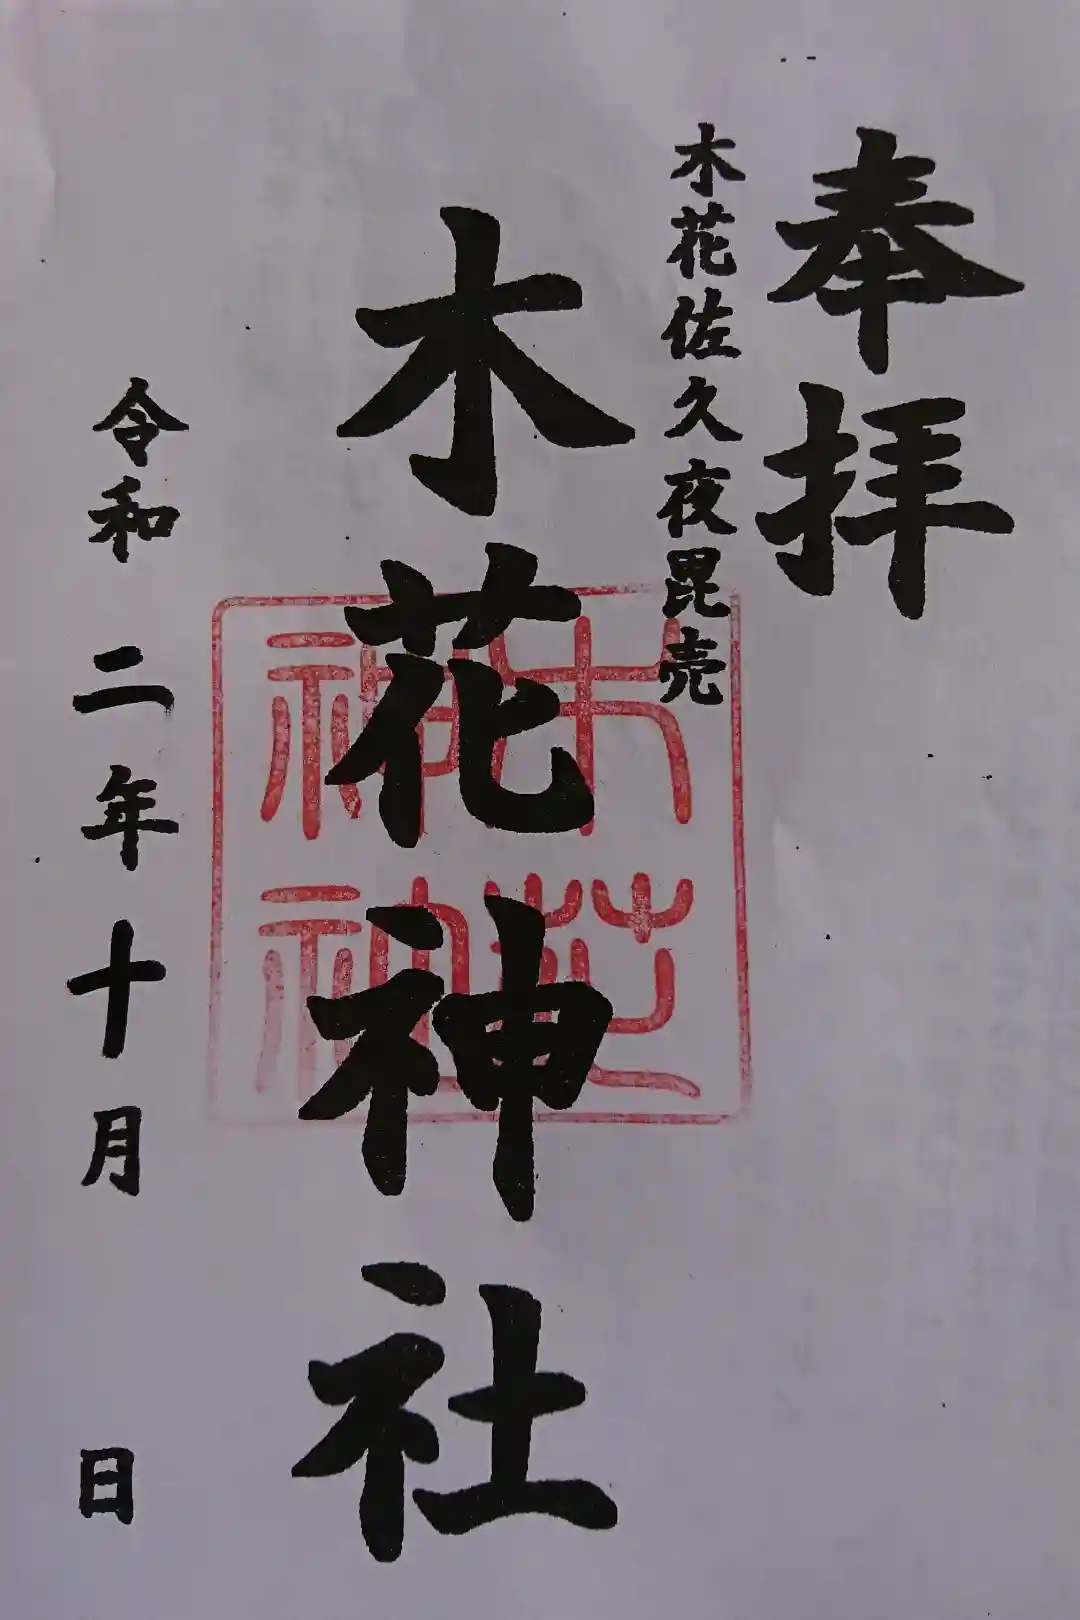 奉拝
木花佐久夜毘売
木花神社
木花
神社
令和二年十月 日